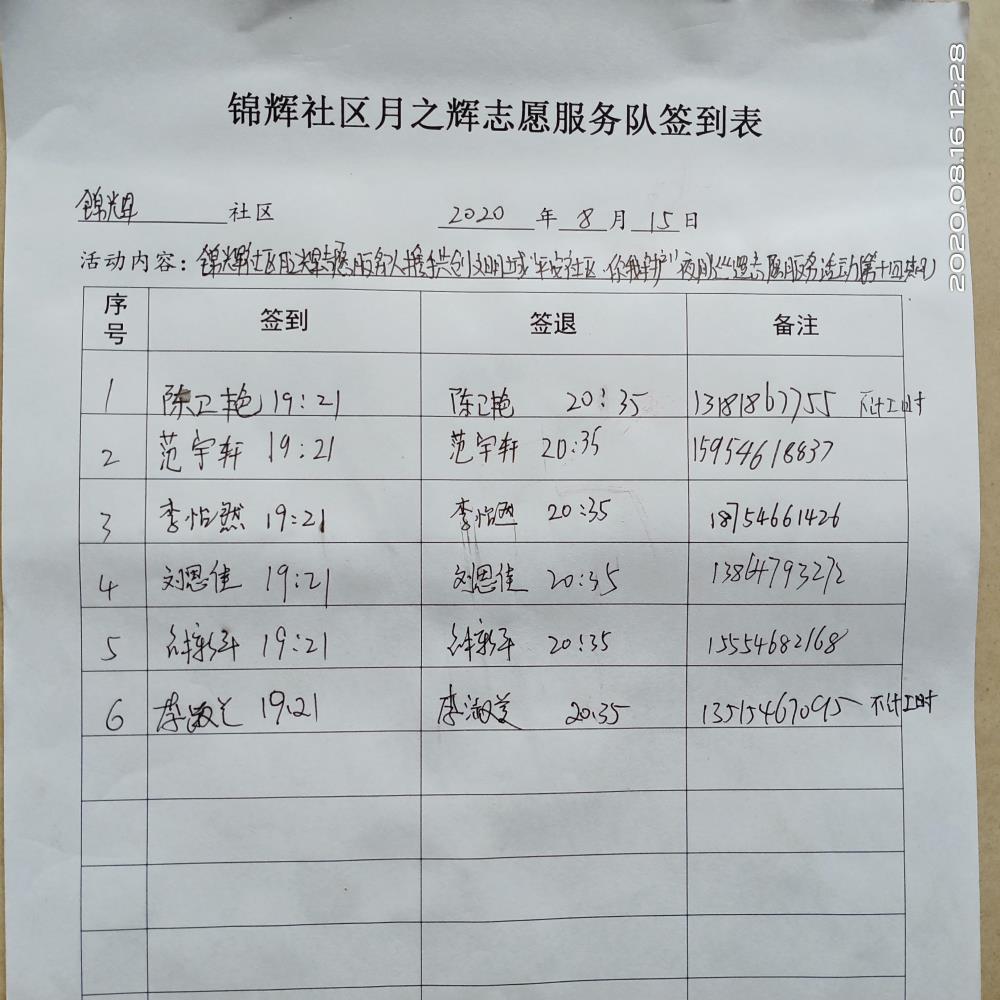 锦辉社区月之辉志愿服务队签到表
2020.08.16 12:28
锦辉 社区 2020 年 8 月 15 日
活动内容：锦辉社区月之辉志愿服务队携手共创文明城"平安社区 你我守护"夜间巡逻志愿服务活动
序号 签到 签退 备注
1 陈卫艳 19:21 陈卫艳 20:35 13181867755 不计工时
2 范宇轩 19:21 范宇轩 20:35 15954618837
3 李怡然 19:21 李怡然 20:35 18754661426
4 刘恩佳 19:21 刘恩佳 20:35 13864793272
5 19:21 20:35 15554682168
6 李淑兰 19:21 李淑 20:35 13515467095 不计工时